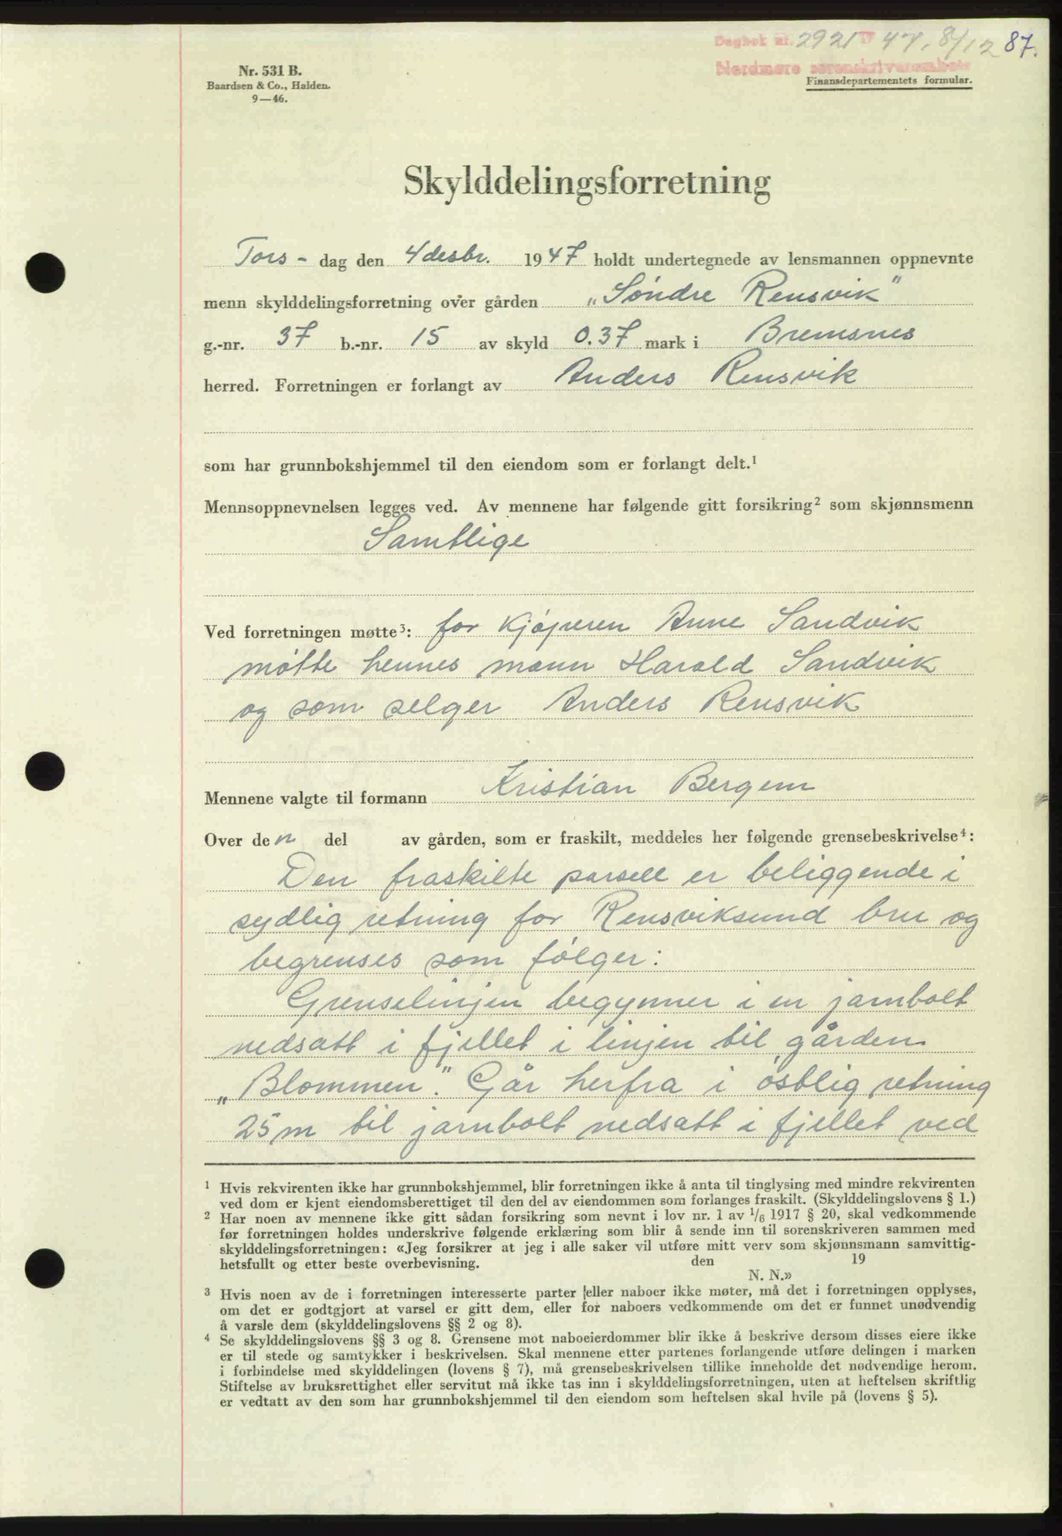 Dagbok nr. 2921 47. 8/12 87.
Nordmøre sorenskriverembete
Nr. 531 B.
Baardsen & Co., Halden.
9—46.
Finansdepartementets formular.
Skylddelingsforretning
Tors- dag den 4 desbr. 1947 holdt undertegnede av lensmannen oppnevnte
menn skylddelingsforretning over gården „Søndre Rensvik"
g.-nr. 37 b.-nr. 15 av skyld 0.37 mark i Bremsnes
herred. Forretningen er forlangt av Anders Rensvik
som har grunnbokshjemmel til den eiendom som er forlangt delt.¹
Mennsoppnevnelsen legges ved. Av mennene har følgende gitt forsikring² som skjønnsmenn
Samtlige
Ved forretningen møtte³: for kjøperen Anne Sandvik
møtte hennes mann Harald Sandvik
og som selger Anders Rensvik
Mennene valgte til formann Kristian Bergem
Over den del av gården, som er fraskilt, meddeles her følgende grensebeskrivelse⁴:
Den fraskilte parsell er beliggende i
sydlig retning for Rensviksund bru og
begrenses som følger:
Grenselinjen begynner i en jarnbolt
nedsatt i fjellet i linjen til gården
„Blommen". Går herfra i østlig retning
25 m til jarnbolt nedsatt i fjellet ved
¹ Hvis rekvirenten ikke har grunnbokshjemmel, blir forretningen ikke å anta til tinglysing med mindre rekvirenten
ved dom er kjent eiendomsberettiget til den del av eiendommen som forlanges fraskilt. (Skylddelingslovens § 1.)
² Har noen av mennene ikke gitt sådan forsikring som nevnt i lov nr. 1 av 1/6 1917 § 20, skal vedkommende
før forretningen holdes underskrive følgende erklæring som blir å sende inn til sorenskriveren sammen med
skylddelingsforretningen: «Jeg forsikrer at jeg i alle saker vil utføre mitt verv som skjønnsmann samvittig-
hetsfullt og etter beste overbevisning. den 19
N. N.»
³ Hvis noen av de i forretningen interesserte parter eller naboer ikke møter, må det i forretningen opplyses,
om det er godtgjort at varsel er gitt dem, eller for naboers vedkommende om det er funnet unødvendig
å varsle dem (skylddelingslovens §§ 2 og 8).
⁴ Se skylddelingslovens §§ 3 og 8. Grensene mot naboeierdommer blir ikke å beskrive dersom disses eiere ikke
er til stede og samtykker i beskrivelsen. Skal mennene etter partenes forlangende utføre delingen i marken
i forbindelse med skylddelingen (lovens § 7), må grensebeskrivelsen tillike inneholde det nødvendige herom.
Stiftelse av bruksrettighet eller servitut må ikke tas inn i skylddelingsforretningen, uten at heftelsen skriftlig
er vedtatt av den som har grunnbokshjemmel til den eiendom som heftelsen skal hvile på (lovens § 5).